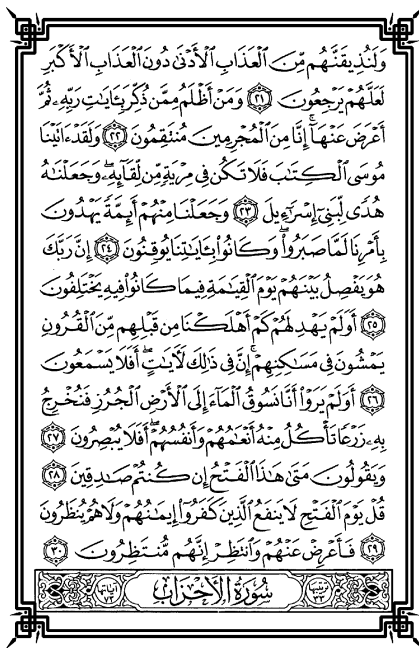 وَلَنُذِيقَنَّهُم مِّنَ ٱلْعَذَابِ ٱلْأَدْنَىٰ دُونَ ٱلْعَذَابِ ٱلْأَكْبَرِ
لَعَلَّهُمْ يَرْجِعُونَ ٢١ وَمَنْ أَظْلَمُ مِمَّن ذُكِّرَ بِـَٔايَـٰتِ رَبِّهِۦ ثُمَّ
أَعْرَضَ عَنْهَآ ۚ إِنَّا مِنَ ٱلْمُجْرِمِينَ مُنتَقِمُونَ ٢٢ وَلَقَدْ ءَاتَيْنَا
مُوسَى ٱلْكِتَـٰبَ فَلَا تَكُن فِى مِرْيَةٍ مِّن لِّقَآئِهِۦ ۖ وَجَعَلْنَـٰهُ
هُدًى لِّبَنِىٓ إِسْرَٰٓءِيلَ ٢٣ وَجَعَلْنَا مِنْهُمْ أَئِمَّةً يَهْدُونَ
بِأَمْرِنَا لَمَّا صَبَرُوا۟ ۖ وَكَانُوا۟ بِـَٔايَـٰتِنَا يُوقِنُونَ ٢٤ إِنَّ رَبَّكَ
هُوَ يَفْصِلُ بَيْنَهُمْ يَوْمَ ٱلْقِيَـٰمَةِ فِيمَا كَانُوا۟ فِيهِ يَخْتَلِفُونَ
٢٥ أَوَلَمْ يَهْدِ لَهُمْ كَمْ أَهْلَكْنَا مِن قَبْلِهِم مِّنَ ٱلْقُرُونِ
يَمْشُونَ فِى مَسَـٰكِنِهِمْ ۚ إِنَّ فِى ذَٰلِكَ لَـَٔايَـٰتٍ ۖ أَفَلَا يَسْمَعُونَ
٢٦ أَوَلَمْ يَرَوْا۟ أَنَّا نَسُوقُ ٱلْمَآءَ إِلَى ٱلْأَرْضِ ٱلْجُرُزِ فَنُخْرِجُ
بِهِۦ زَرْعًا تَأْكُلُ مِنْهُ أَنْعَـٰمُهُمْ وَأَنفُسُهُمْ ۖ أَفَلَا يُبْصِرُونَ ٢٧
وَيَقُولُونَ مَتَىٰ هَـٰذَا ٱلْفَتْحُ إِن كُنتُمْ صَـٰدِقِينَ ٢٨
قُلْ يَوْمَ ٱلْفَتْحِ لَا يَنفَعُ ٱلَّذِينَ كَفَرُوٓا۟ إِيمَـٰنُهُمْ وَلَا هُمْ يُنظَرُونَ
٢٩ فَأَعْرِضْ عَنْهُمْ وَٱنتَظِرْ إِنَّهُم مُّنتَظِرُونَ ٣٠
ترتيبها ٣٣ سُورَةُ ٱلْأَحْزَابِ آياتها ٧٣